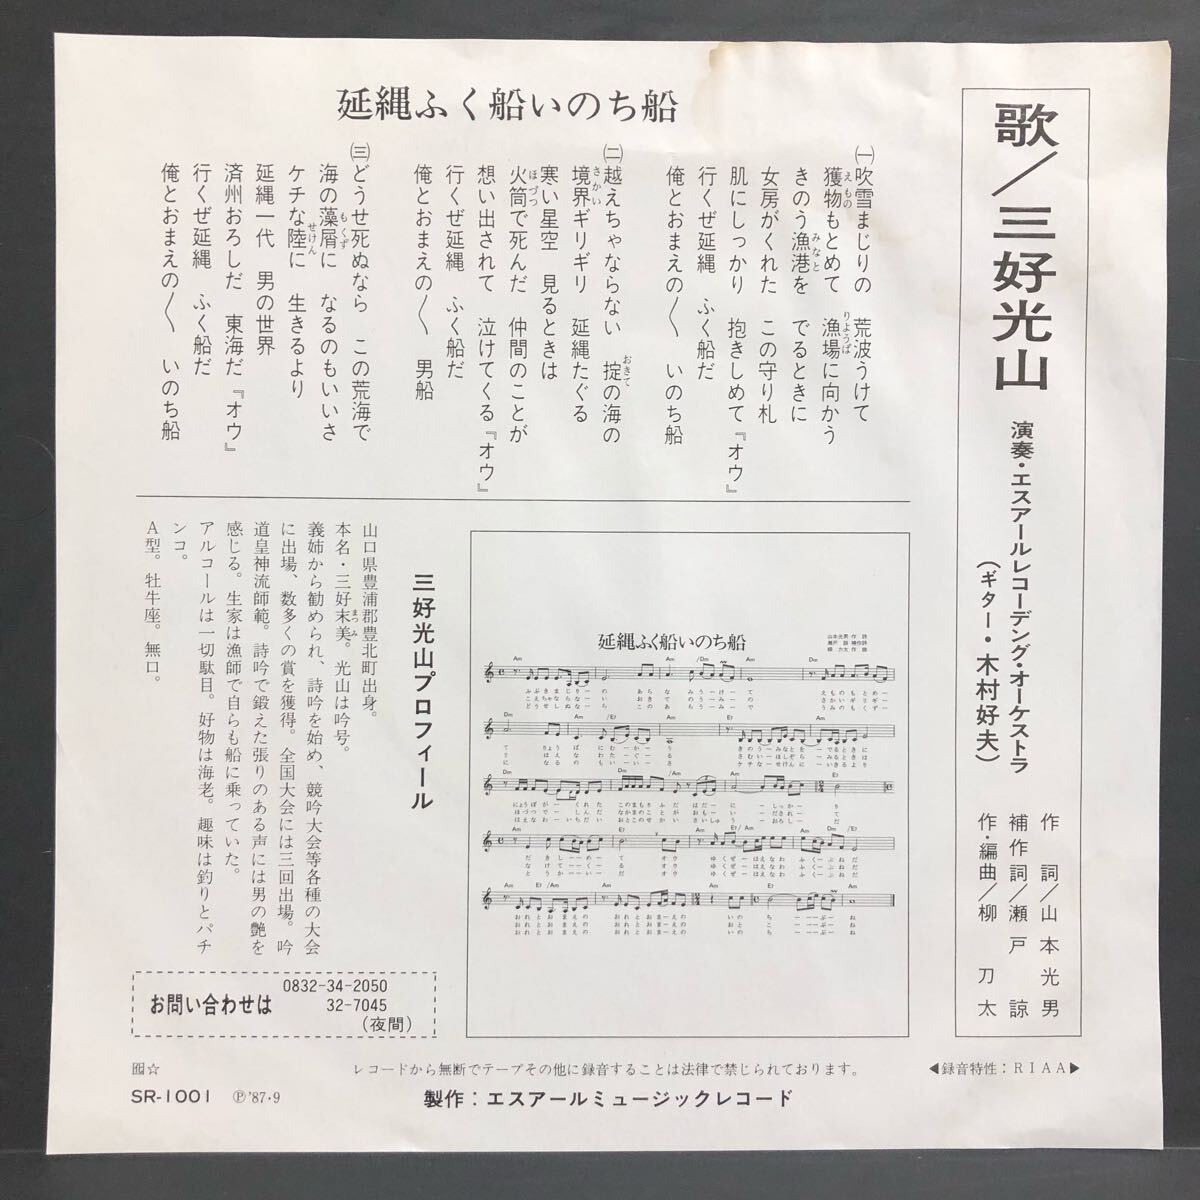 歌／三好光山
演奏・エスアールレコーデング・オーケストラ
（ギター・木村好夫）
作詞／山本光男
補作詞／瀬戸諒
作・編曲／柳刀太
延縄ふく船いのち船
㈠吹雪まじりの　荒波うけて
獲物もとめて　漁場に向かう
きのう漁港を　でるときに
女房がくれた　この守り札
肌にしっかり　抱きしめて『オウ』
行くぜ延縄　ふく船だ
俺とおまえの〱　いのち船
㈡越えちゃならない　掟の海の
境界ギリギリ　延縄たぐる
寒い星空　見るときは
火筒で死んだ　仲間のことが
想い出されて　泣けてくる『オウ』
行くぜ延縄　ふく船だ
俺とおまえの〱　男船
㈢どうせ死ぬなら　この荒海で
海の藻屑に　なるのもいいさ
ケチな陸に　生きるより
延縄一代　男の世界
済州おろしだ　東海だ『オウ』
行くぜ延縄　ふく船だ
俺とおまえの〱　いのち船
延縄ふく船いのち船
山本光男　作詩
瀬戸　諒　補作詩
柳　刀太　作曲
三好光山プロフィール
山口県豊浦郡豊北町出身。
本名・三好末美。光山は吟号。
義姉から勧められ、詩吟を始め、競吟大会等各種の大会
に出場、数多くの賞を獲得。全国大会には三回出場。吟
道皇神流師範。詩吟で鍛えた張りのある声には男の艶を
感じる。生家は漁師で自らも船に乗っていた。
アルコールは一切駄目。好物は海老。趣味は釣りとパチ
ンコ。
A型。牡牛座。無口。
お問い合わせは
0832-34-2050
32-7045
（夜間）
☆
レコードから無断でテープその他に録音することは法律で禁じられております。
◀録音特性：RIAA▶
SR-1001　Ⓟ'87・9
製作：エスアールミュージックレコード